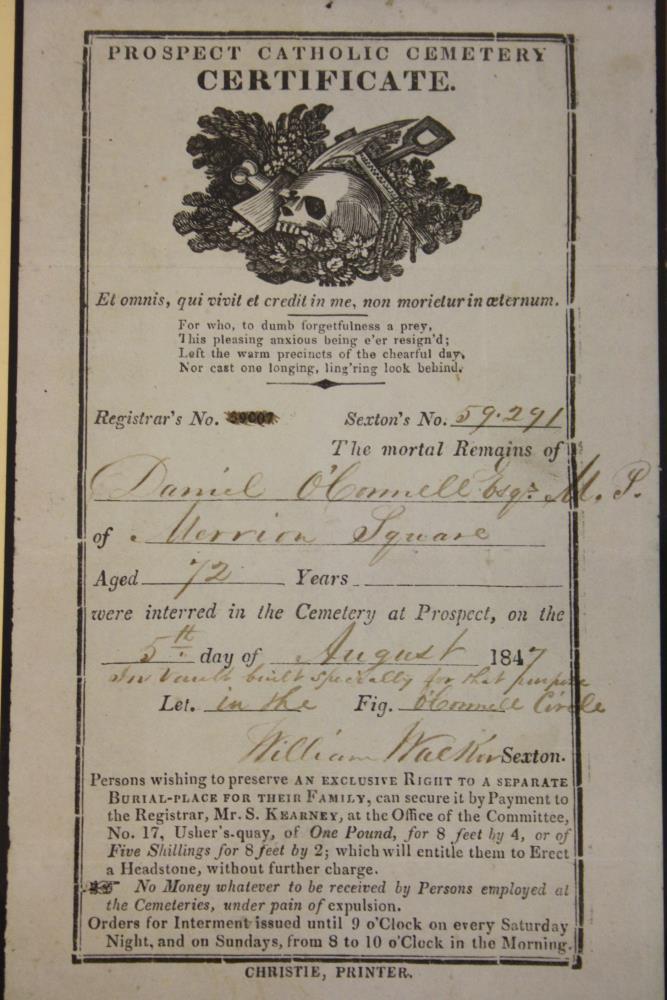 PROSPECT CATHOLIC CEMETERY
CERTIFICATE.
Et omnis, qui vivit et credit in me, non morietur in æternum.
For who, to dumb forgetfulness a prey,
This pleasing anxious being e'er resign'd;
Left the warm precincts of the chearful day,
Nor cast one longing, ling'ring look behind.
Registrar's No. 59007 Sexton's No. 59.291
The mortal Remains of
Daniel O'Connell Esqr. M. P.
of Merrion Square
Aged 72 Years
were interred in the Cemetery at Prospect, on the
5th day of August 1847
In Vault built specially for that purpose
Let. in the Fig. O'Connell Circle
William Walker Sexton.
Persons wishing to preserve AN EXCLUSIVE RIGHT TO A SEPARATE
BURIAL-PLACE FOR THEIR FAMILY, can secure it by Payment to
the Registrar, Mr. S. KEARNEY, at the Office of the Committee,
No. 17, Usher's-quay, of One Pound, for 8 feet by 4, or of
Five Shillings for 8 feet by 2; which will entitle them to Erect
a Headstone, without further charge.
☞ No Money whatever to be received by Persons employed at
the Cemeteries, under pain of expulsion.
Orders for Interment issued until 9 o'Clock on every Saturday
Night, and on Sundays, from 8 to 10 o'Clock in the Morning.
CHRISTIE, PRINTER.